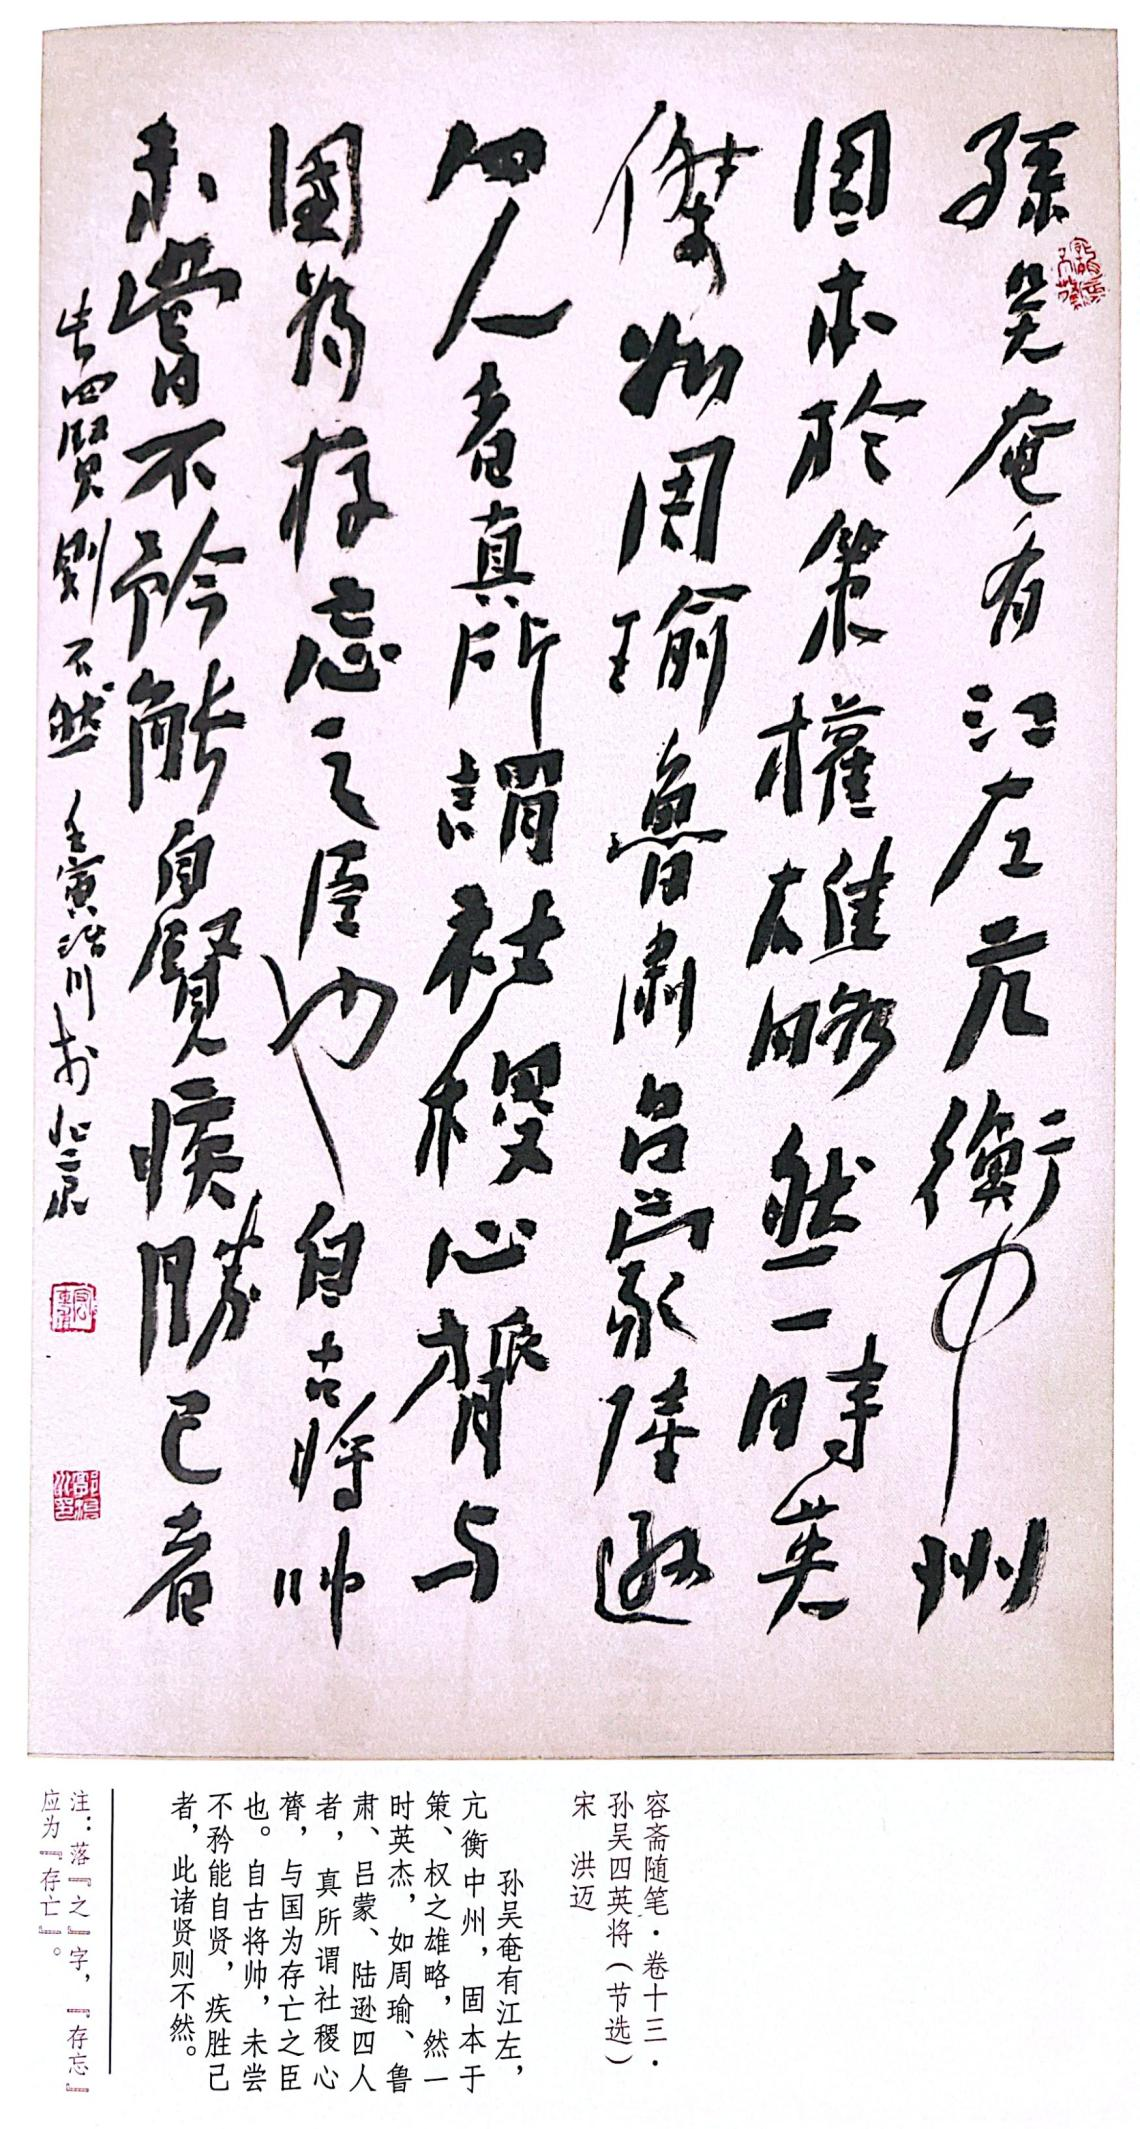 孫吴奄有江左亢衡中州
固本於策權雄略然一時英
傑如周瑜魯肅吕蒙陸遜
四人者真所謂社稷心膂与
國為存忘之臣也自古將帅
未嘗不矜能自賢疾勝己者
此四賢則不然 壬寅浩川於北京
容斋随笔·卷十三·
孙吴四英将（节选）
宋 洪迈
孙吴奄有江左，
亢衡中州，固本于
策、权之雄略，然一
时英杰，如周瑜、鲁
肃、吕蒙、陆逊四人
者，真所谓社稷心
膂，与国为存亡之臣
也。自古将帅，未尝
不矜能自贤，疾胜己
者，此诸贤则不然。
注：落『之』字，『存忘』
应为『存亡』。